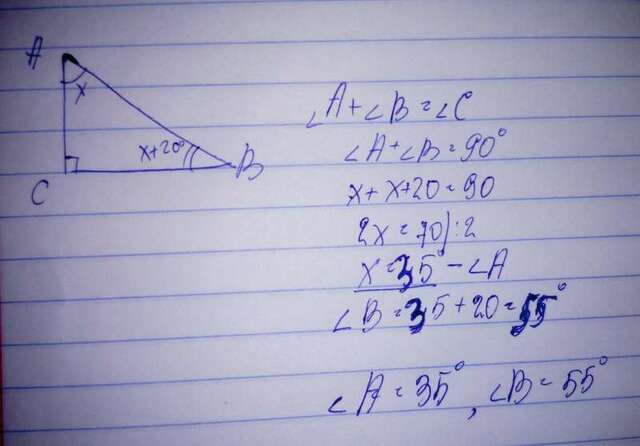 A
x
x+20°
B
C
∠A+∠B=∠C
∠A+∠B=90°
x+x+20=90
2x=70|:2
x=35°-∠A
∠B=35+20=55°
∠A=35°, ∠B=55°